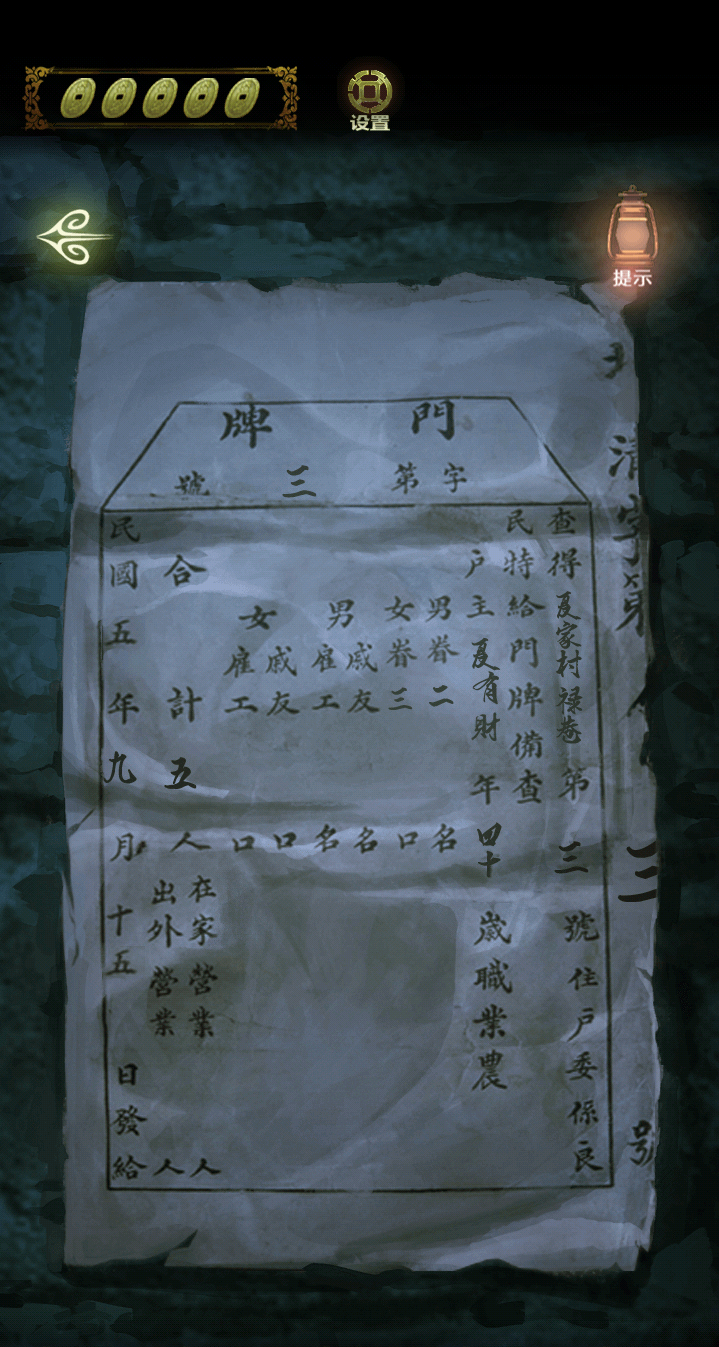 设置
提示
門牌
字第三號
查得夏家村禄巷第三號住戶委係良
民特給門牌備查
戶主夏有財年四十歲職業農
男眷二名
女眷三口
男戚友名
雇工名
女戚友口
雇工口
合計五人
在家營業人
出外營業人
民國五年九月十五日發給
清字第
三
号